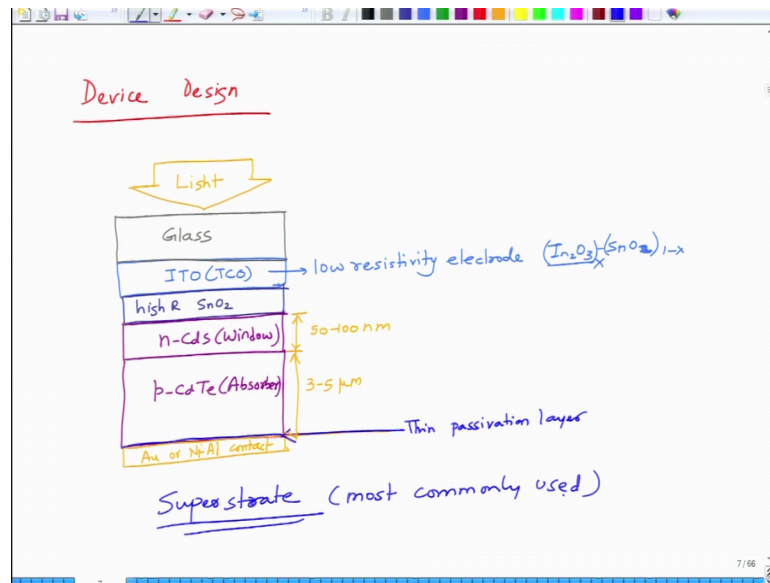 B I
Device Design
Light
Glass
ITO (TCO) → low resistivity electrode (In₂O₃)ₓ-(SnO₂)₁₋ₓ
high R SnO₂
n-CdS (Window) 50-100 nm
p-CdTe (Absorber) 3-5 μm
Thin passivation layer
Au or Ni-Al contact
Superstrate (most commonly used)
7/66